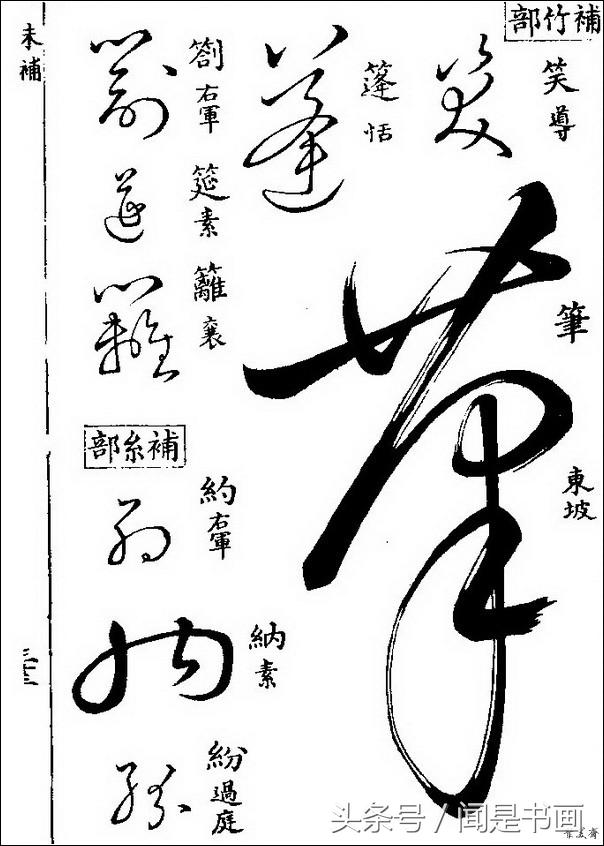 補竹部
笑 導
筆 東坡
篷 恬
劄 右軍
筵 素
籬 襄
補糸部
約 右軍
納 素
紛 過庭
未補
三十三
头条号／闻是书画